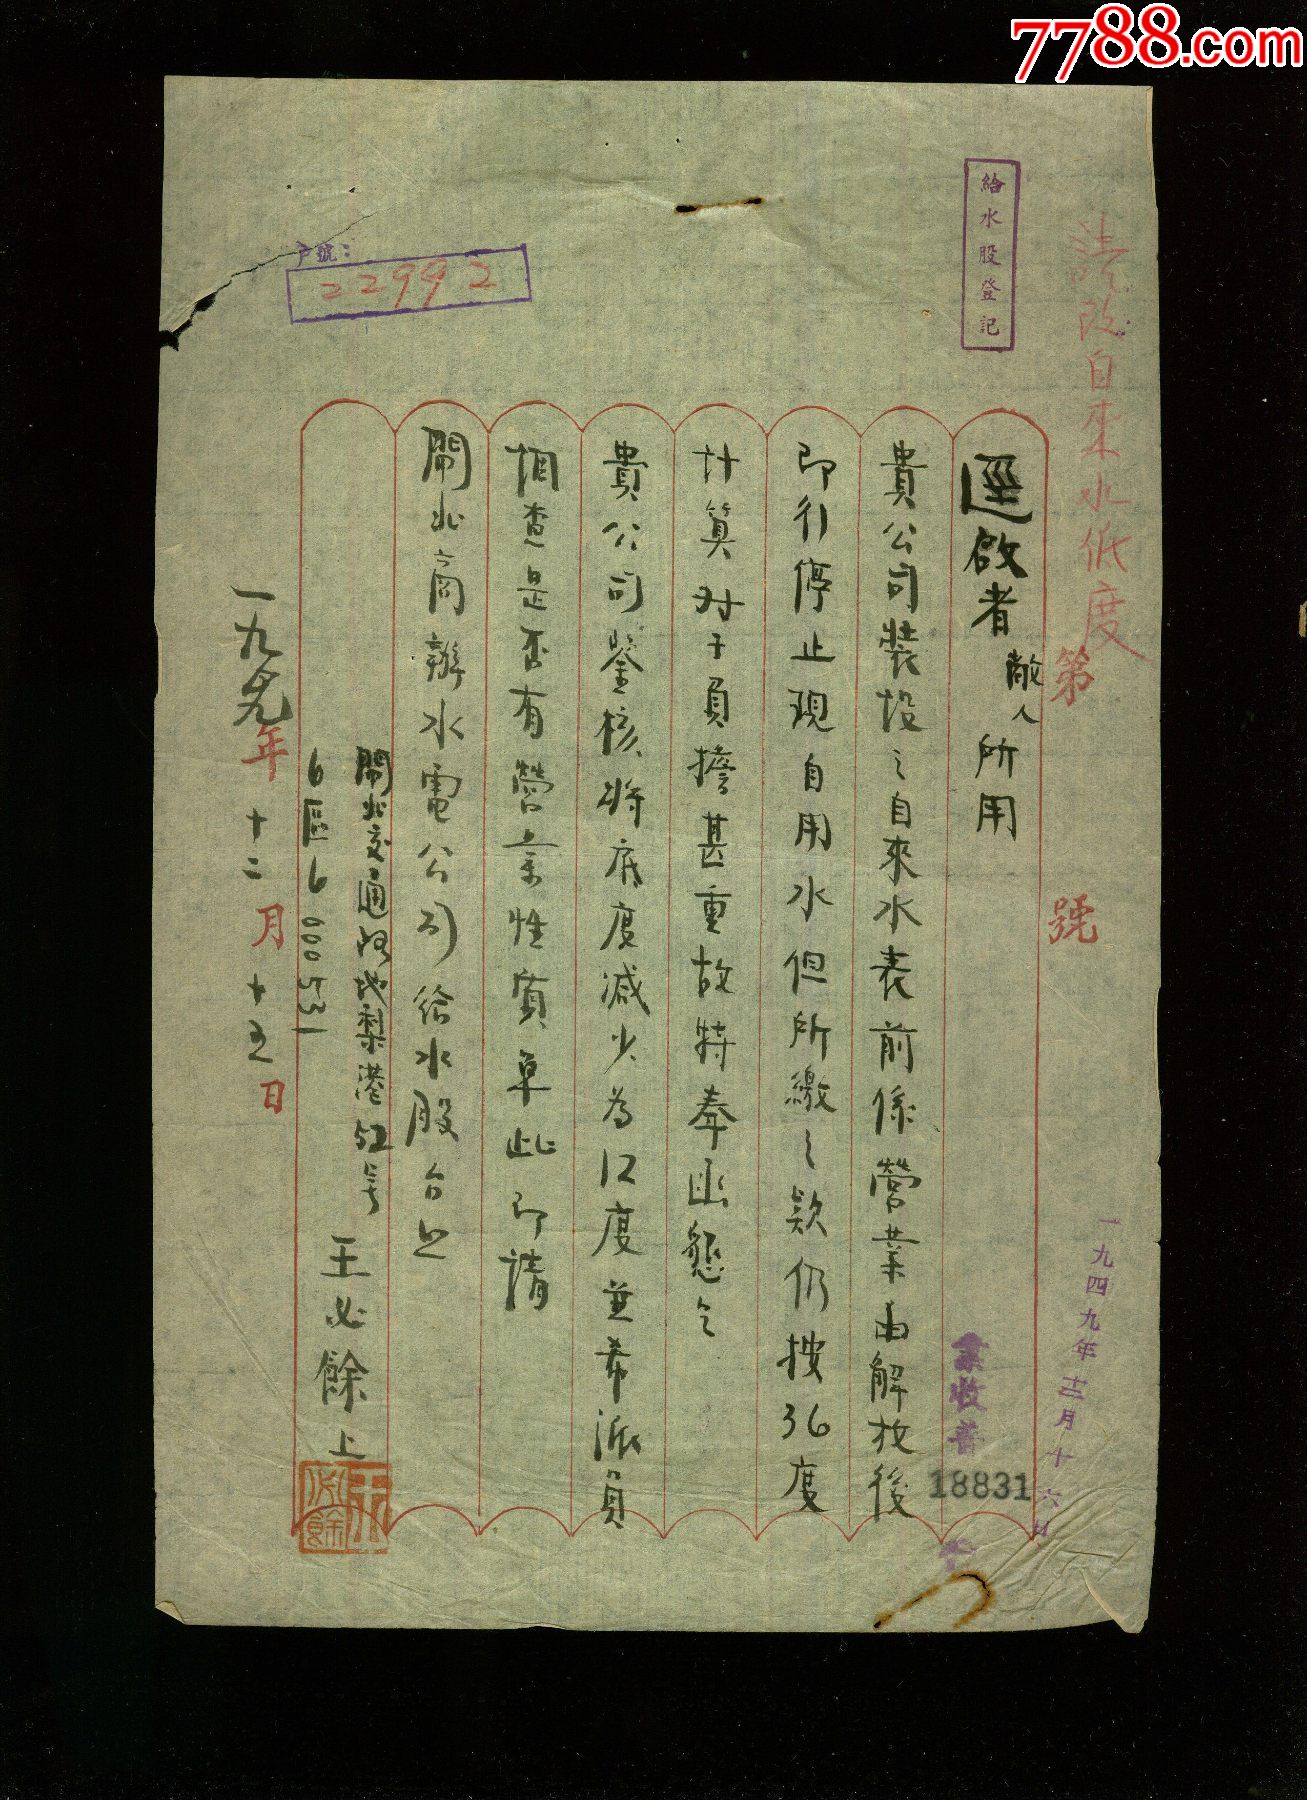 7788.com
請改自來水低度
給水股登記
戶號：
22992
第 號
一九四九年十二月十六日
逕啟者敝人所用
貴公司裝設之自來水表前係營業由解放後
即行停止現自用水但所繳之款仍按36度
計算对于負擔甚重故特奉函懇乞
貴公司鑒核将底度減少为12度並希派員
調查是否有營業性質專此即請
閘北商辦水電公司給水股台鉴
閘北交通路地梨港52号
6區6
王必餘上
一九四九年十二月十五日
18831